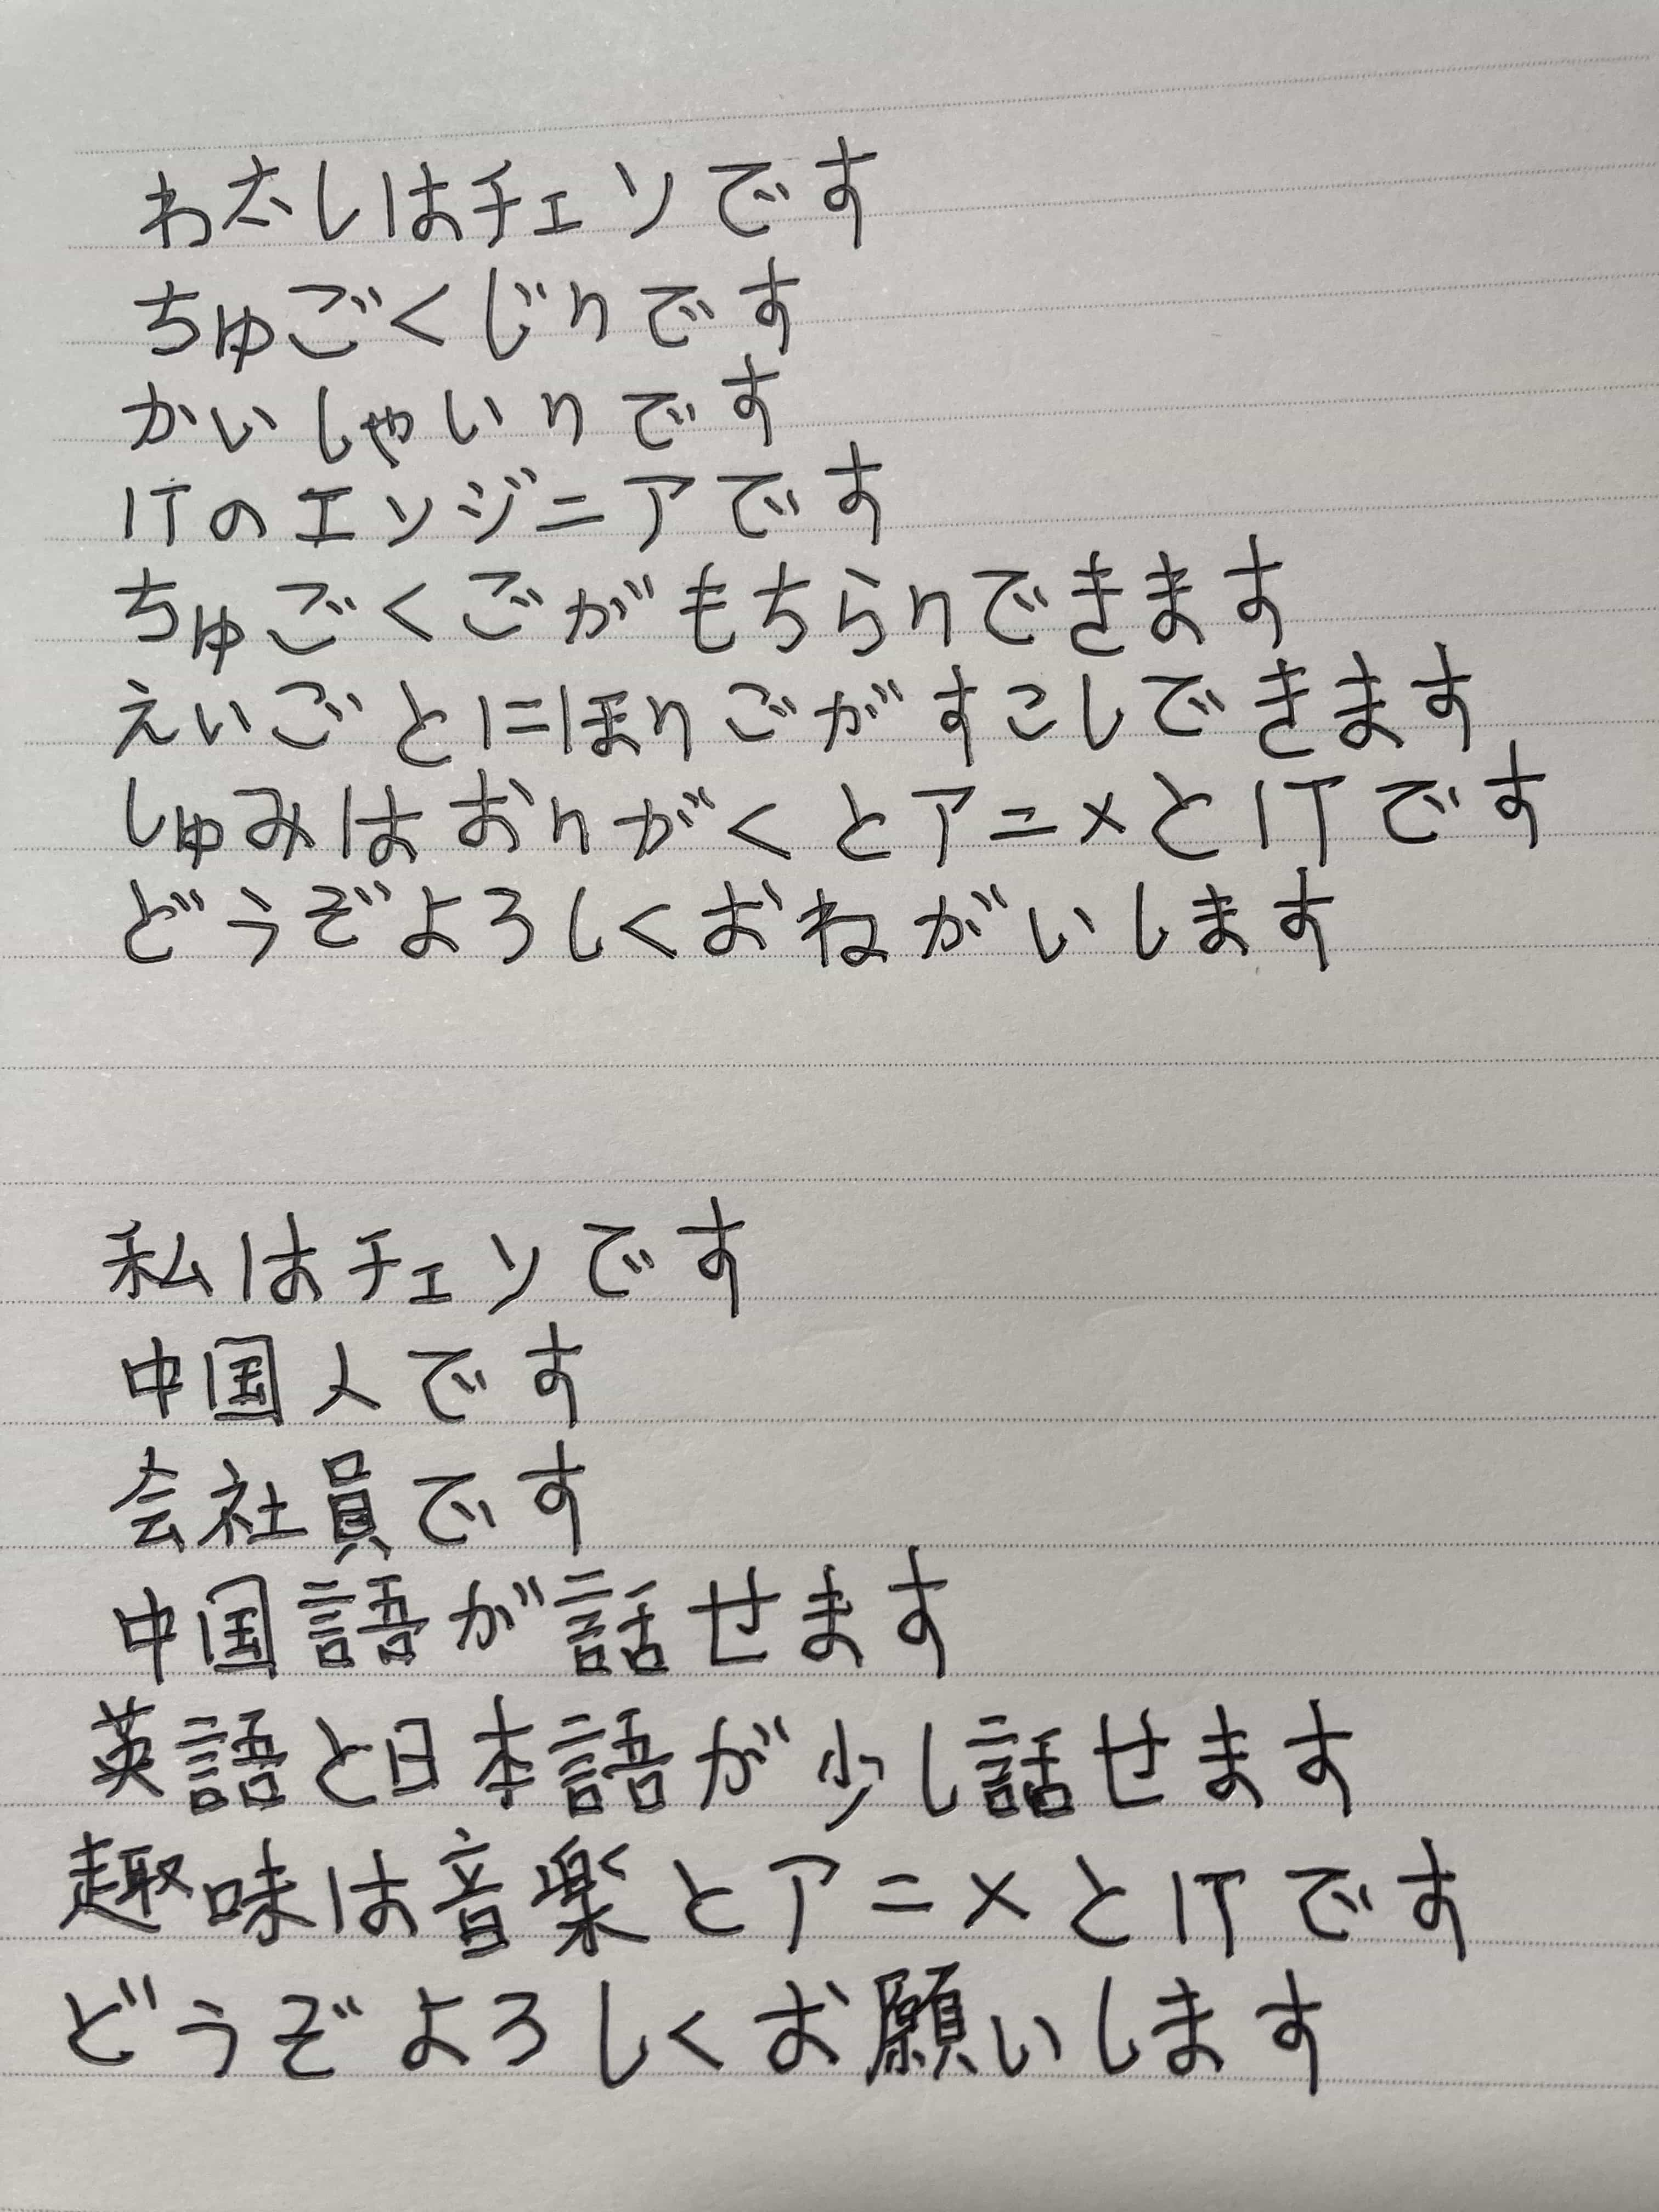 わ太しはチェンです
ちゅごくじんです
かいしゃいんです
ITのエンジニアです
ちゅごくごがもちらんできます
えいごとにほんごがすこしできます
しゅみはおんがくとアニメとITです
どうぞよろしくおねがいします
私はチェンです
中国人です
会社員です
中国語が話せます
英語と日本語が少し話せます
趣味は音楽とアニメとITです
どうぞよろしくお願いします